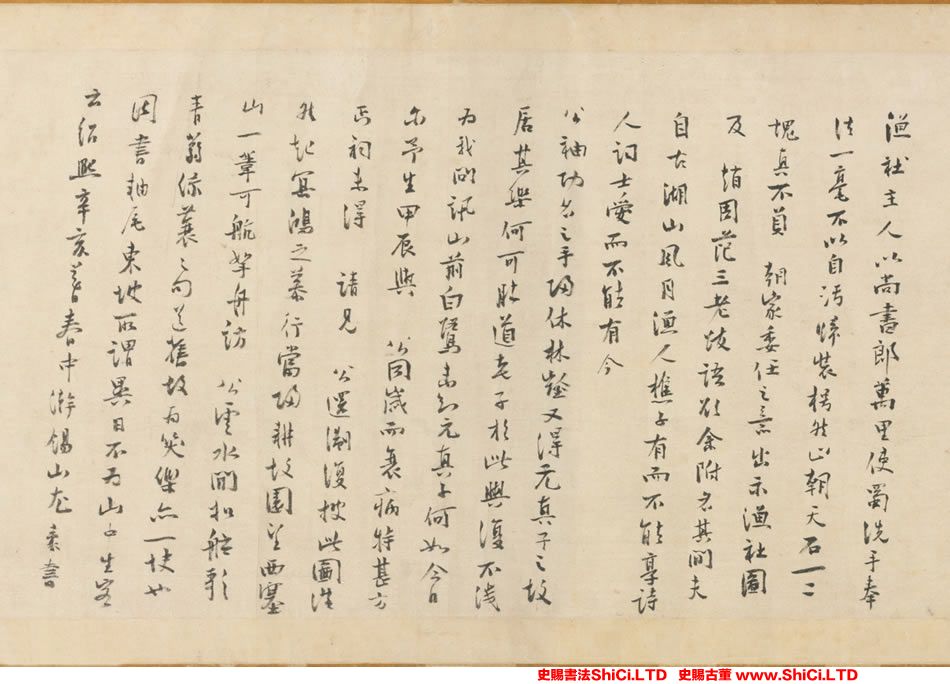 漁社主人以尚書郎萬里使蜀洗手奉
法一毫不以自污悚裝楞然止朝天石一二
塊真不負 朝家委任之意出示漁社圖
及 周范三老跋語欲余附名其間夫
自古湖山風月漁人樵子有而不能享詩
人詞士愛而不能有今
公袖功名之手歸休林壑又得元真子之故
居其樂何可勝道老子於此興復不淺
為我問訊山前白鷺未知元真子何如今日
尔予生甲辰與 公同歲而衰病特甚方
丐祠未得 請見 公還 復披此圖浩
然起冥鴻之慕行當歸耕故園望西塞
山一葦可航拏舟訪 公雲水間扣舷歌
青蒻綠蓑之句道舊故為笑樂亦一快也
因書軸尾東坡所謂異日不為山中生客
云紹熙辛亥暮春中澣錫山尤袤書
史賜書法ShiCi.LTD 史賜古董 www.ShiCi.LTD